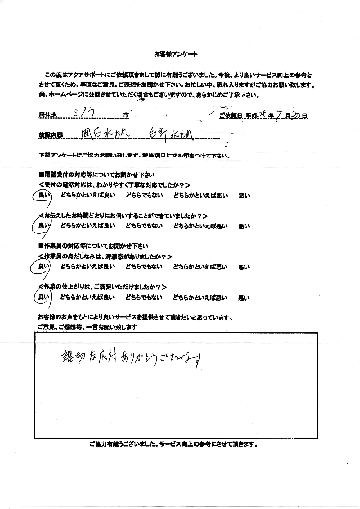 お客様アンケート
この度はアクアサポートにご依頼頂きまして誠に有難うございました。今後、より良いサービス向上の参考と
させて頂くため、率直なご意見、ご感想をお聞かせ下さい。お忙しい中、恐れ入りますがご協力お願い致します。
尚、ホームページに公開させていただく場合もございますので、あらかじめご了承下さい。
市 ご依頼日 平成 年 7月 日
依頼内容
下記アンケートにご協力お願い致します。該当項目に○をお付けください。
■電話受付の対応等についてお聞かせ下さい
<受付の電話対応は、わかりやすく丁寧な対応でしたか?>
良い どちらかといえば良い どちらでもない どちらかといえば悪い 悪い
<お伝えしたお時間どおりにお伺いすることができていましたか?>
良い どちらかといえば良い どちらでもない どちらかといえば悪い 悪い
■作業員の対応等についてお聞かせ下さい
<作業員の身だしなみは、清潔感がありましたか?>
良い どちらかといえば良い どちらでもない どちらかといえば悪い 悪い
<作業の仕上がりは、ご満足いただけましたか?>
良い どちらかといえば良い どちらでもない どちらかといえば悪い 悪い
お客様のお声をもとにより良いサービスを提供させて頂きたいと思っています。
ご意見、ご感想等、一言お願い致します
親切な応対ありがとうございます
ご協力有難うございました。サービス向上の参考にさせて頂きます。